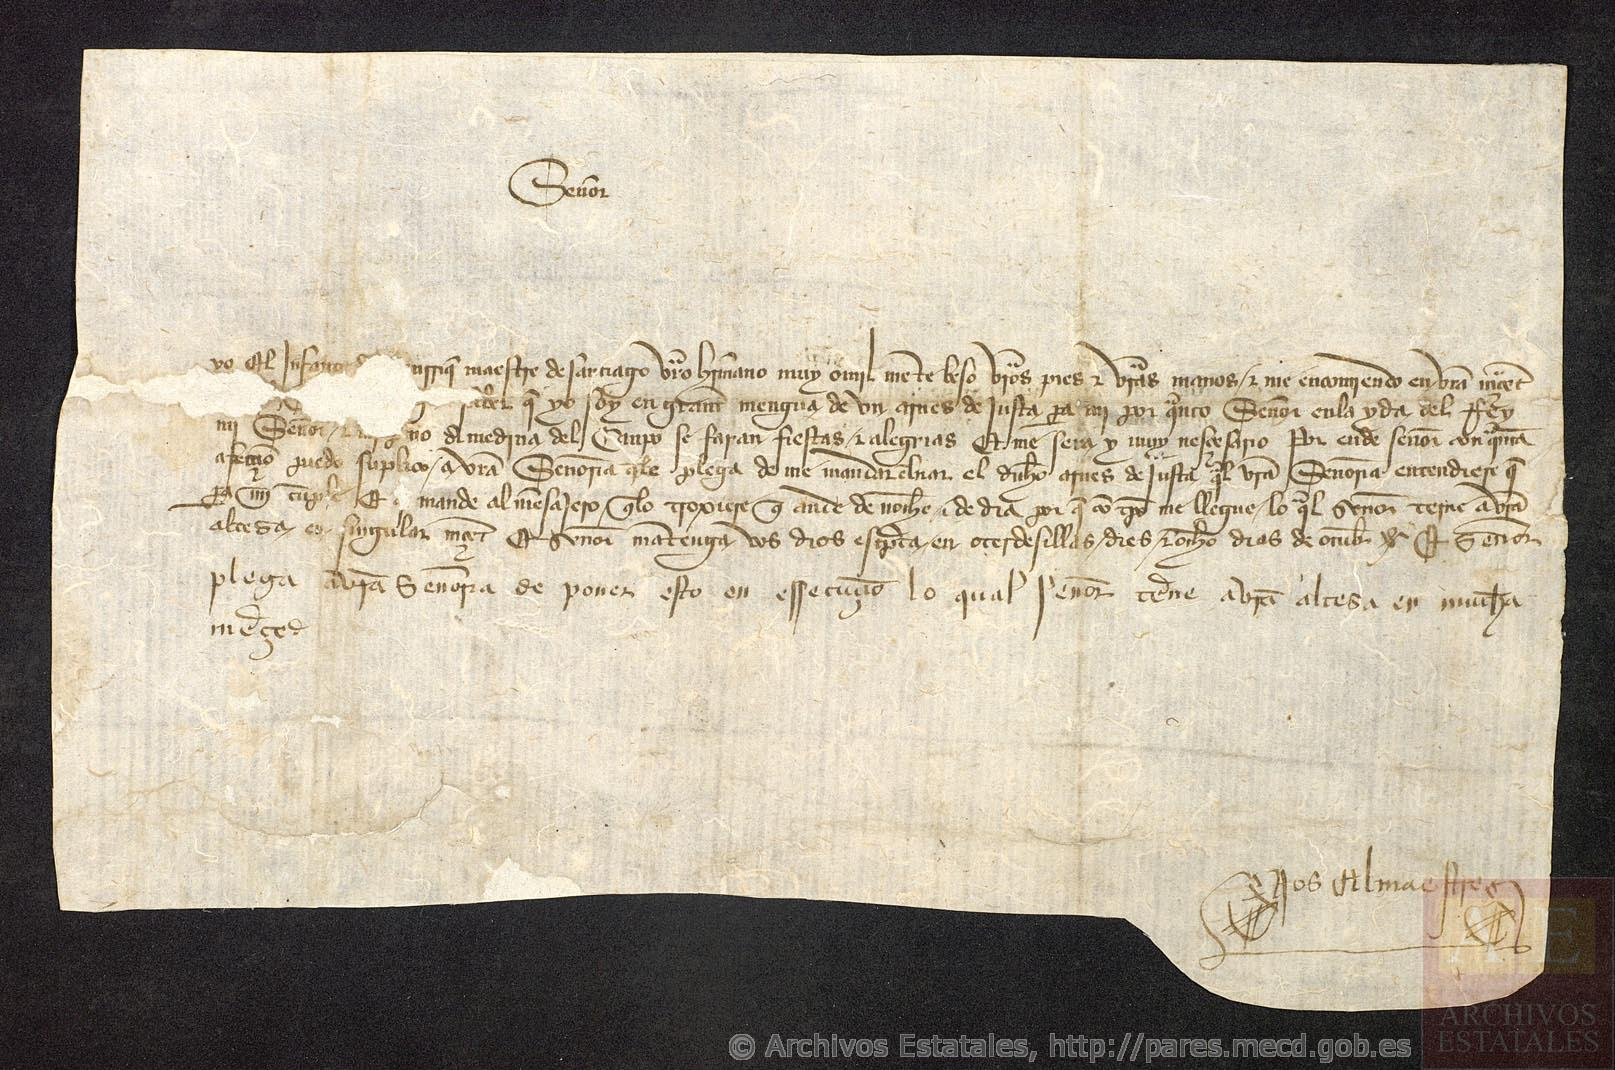 Señor
yo el Infante maestre de santiago vr̃o hermano muy omilmente beso vr̃os pies τ vr̃as manos / τ me encomiendo en vr̃a merçet
saber q̃ yo soy en grant mengua de vn arnes de Justa pa mi por q̃nto Señor en la yda del Rey
mi Señor / no de medina del Campo se faran fiestas / τ alegrias Et me sera y muy nesçesario Por ende señor con q̃nta
afecçion puedo suplico / a vr̃a Señoria q̃ le plega de me mandar el dicho arnes de Justa q̃l vr̃a Señoria entendiere q̃
pa mi cunple Et mande al mensajero q̃ lo troxiere q̃ ande de noche τ de dia por q̃ con tp̃o me llegue / lo q̃l Señor terne a vr̃a
altesa en singular merçet Et Señor mantenga vos dios escripta en oterdesillas / dies τ ocho dias de otubre Et Señor
plega a vr̃a Señoria de poner esto en essecuçion lo qual Señor terne a vr̃a altesa en mucha
merçed
Nos el maestre
AE
ARCHIVOS
ESTATALES
© Archivos Estatales, http://pares.mecd.gob.es